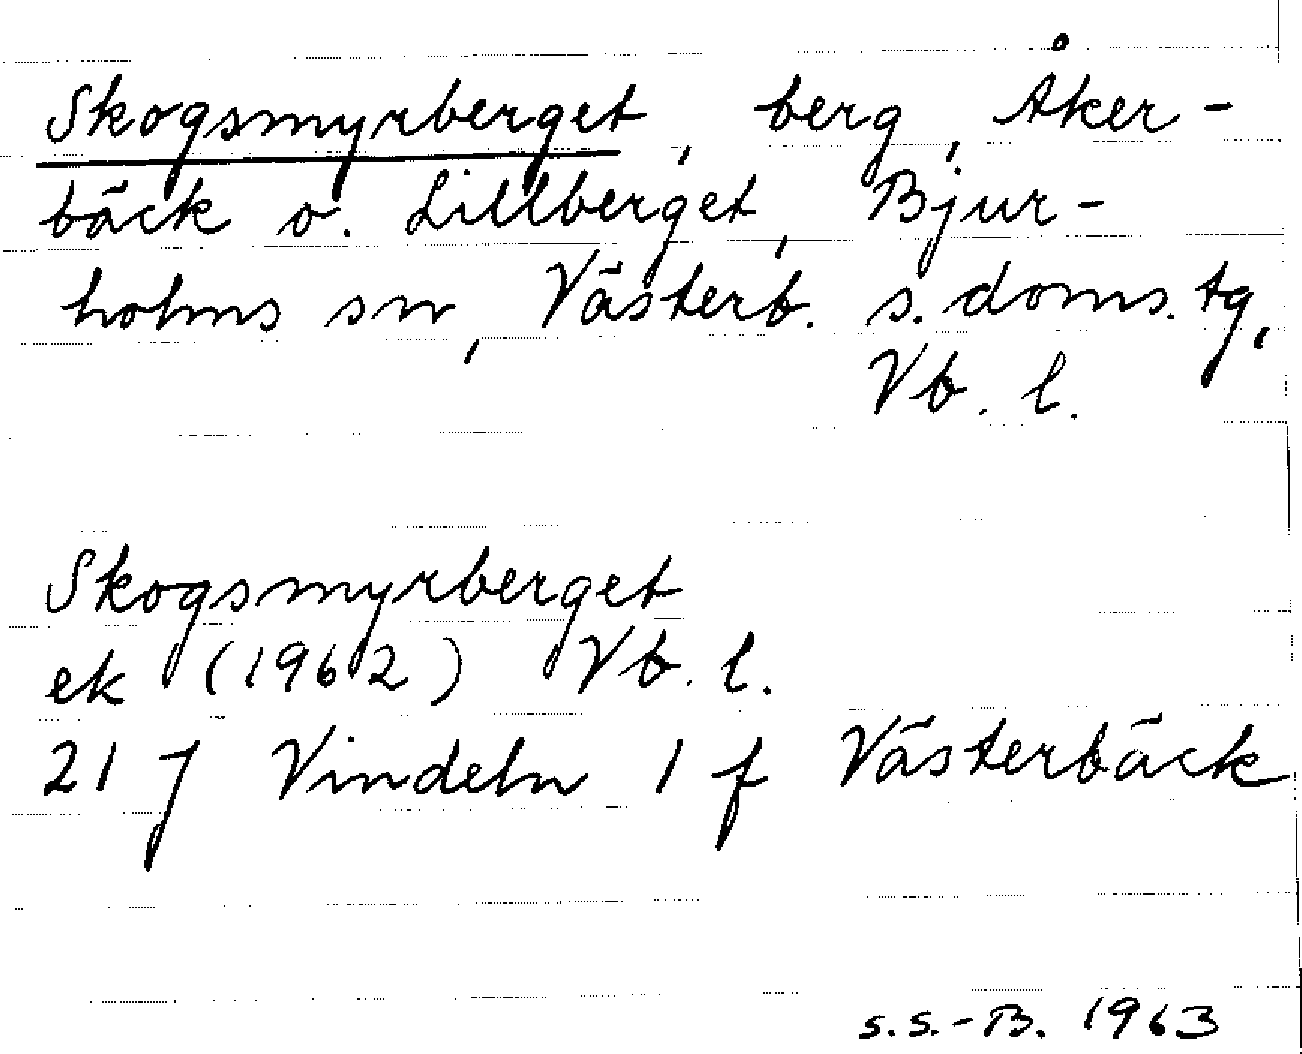 Skogsmyrberget, berg, Åker-
bäck o. Lillberget, Bjur-
holms sn, Västerb. s. doms. tg,
Vb. l.
Skogsmyrberget
ek (1962) Vb. l.
21 J Vindeln 1 f Västerbäck
S.S.-B. 1963